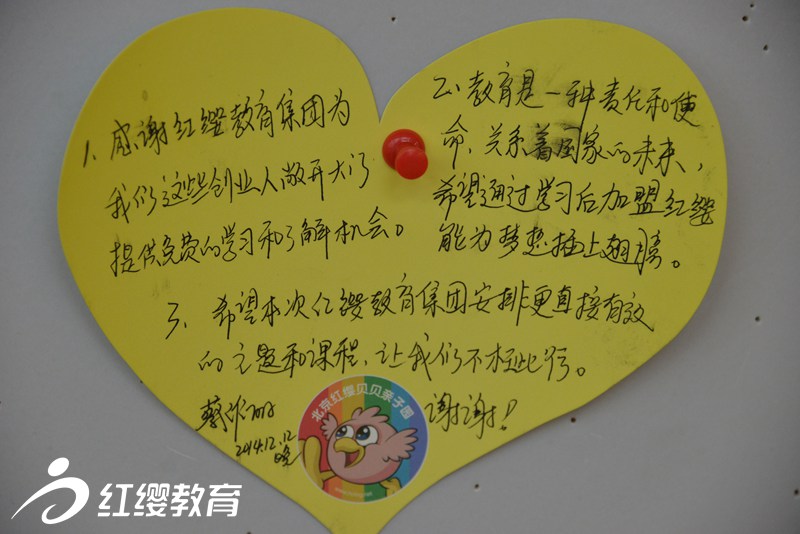 1、感谢红缨教育集团为
我们这些创业人敞开大门
提供免费的学习和了解机会。
2、教育是一种责任和使
命，关系着国家的未来，
希望通过学习后加盟红缨
能为梦想插上翅膀。
3、希望本次红缨教育集团安排更直接有效
的主题和课程，让我们不枉此行。
谢谢！
蔡
2014.12.12
晚
北京红缨贝贝亲子园
红缨教育